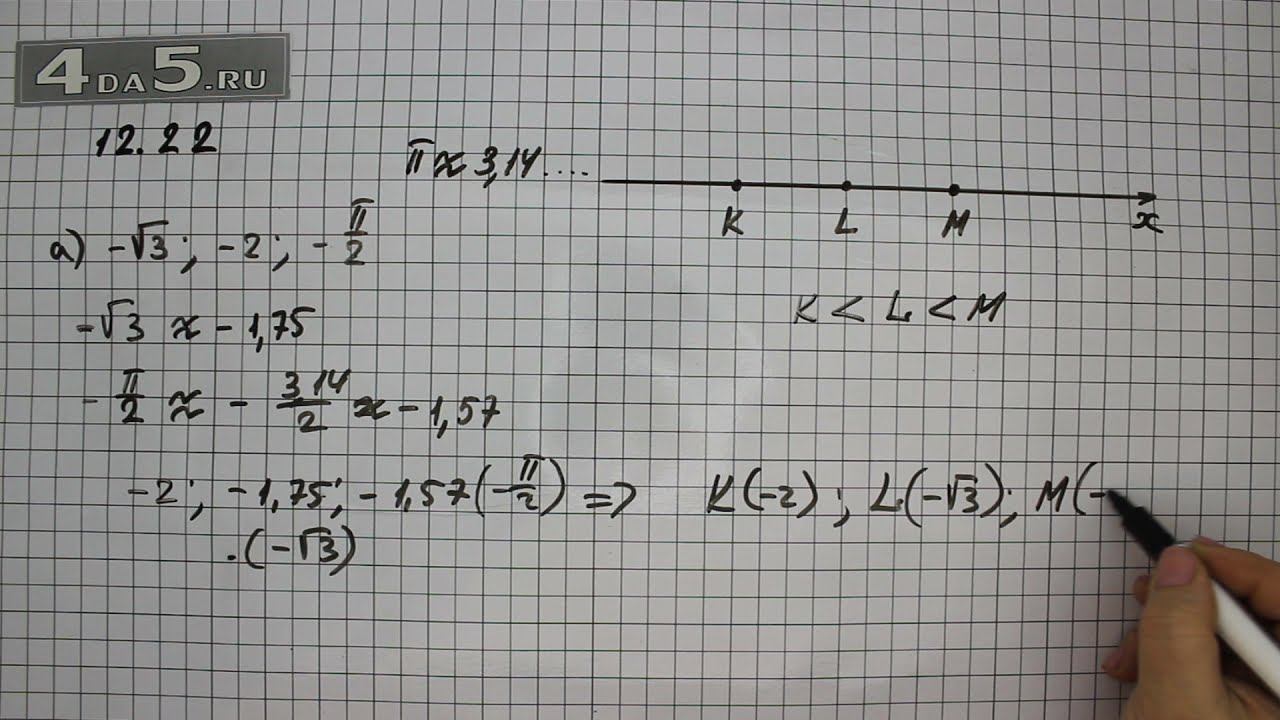 4DA5.RU
12.22
π ≈ 3,14....
K L M x
а) -√3 ; -2 ; -π/2
K < L < M
-√3 ≈ -1,75
-π/2 ≈ -3,14/2 ≈ -1,57
-2 ; -1,75 ; -1,57 (-π/2) => K(-2) ; L(-√3) ; M(-
.(-√3)